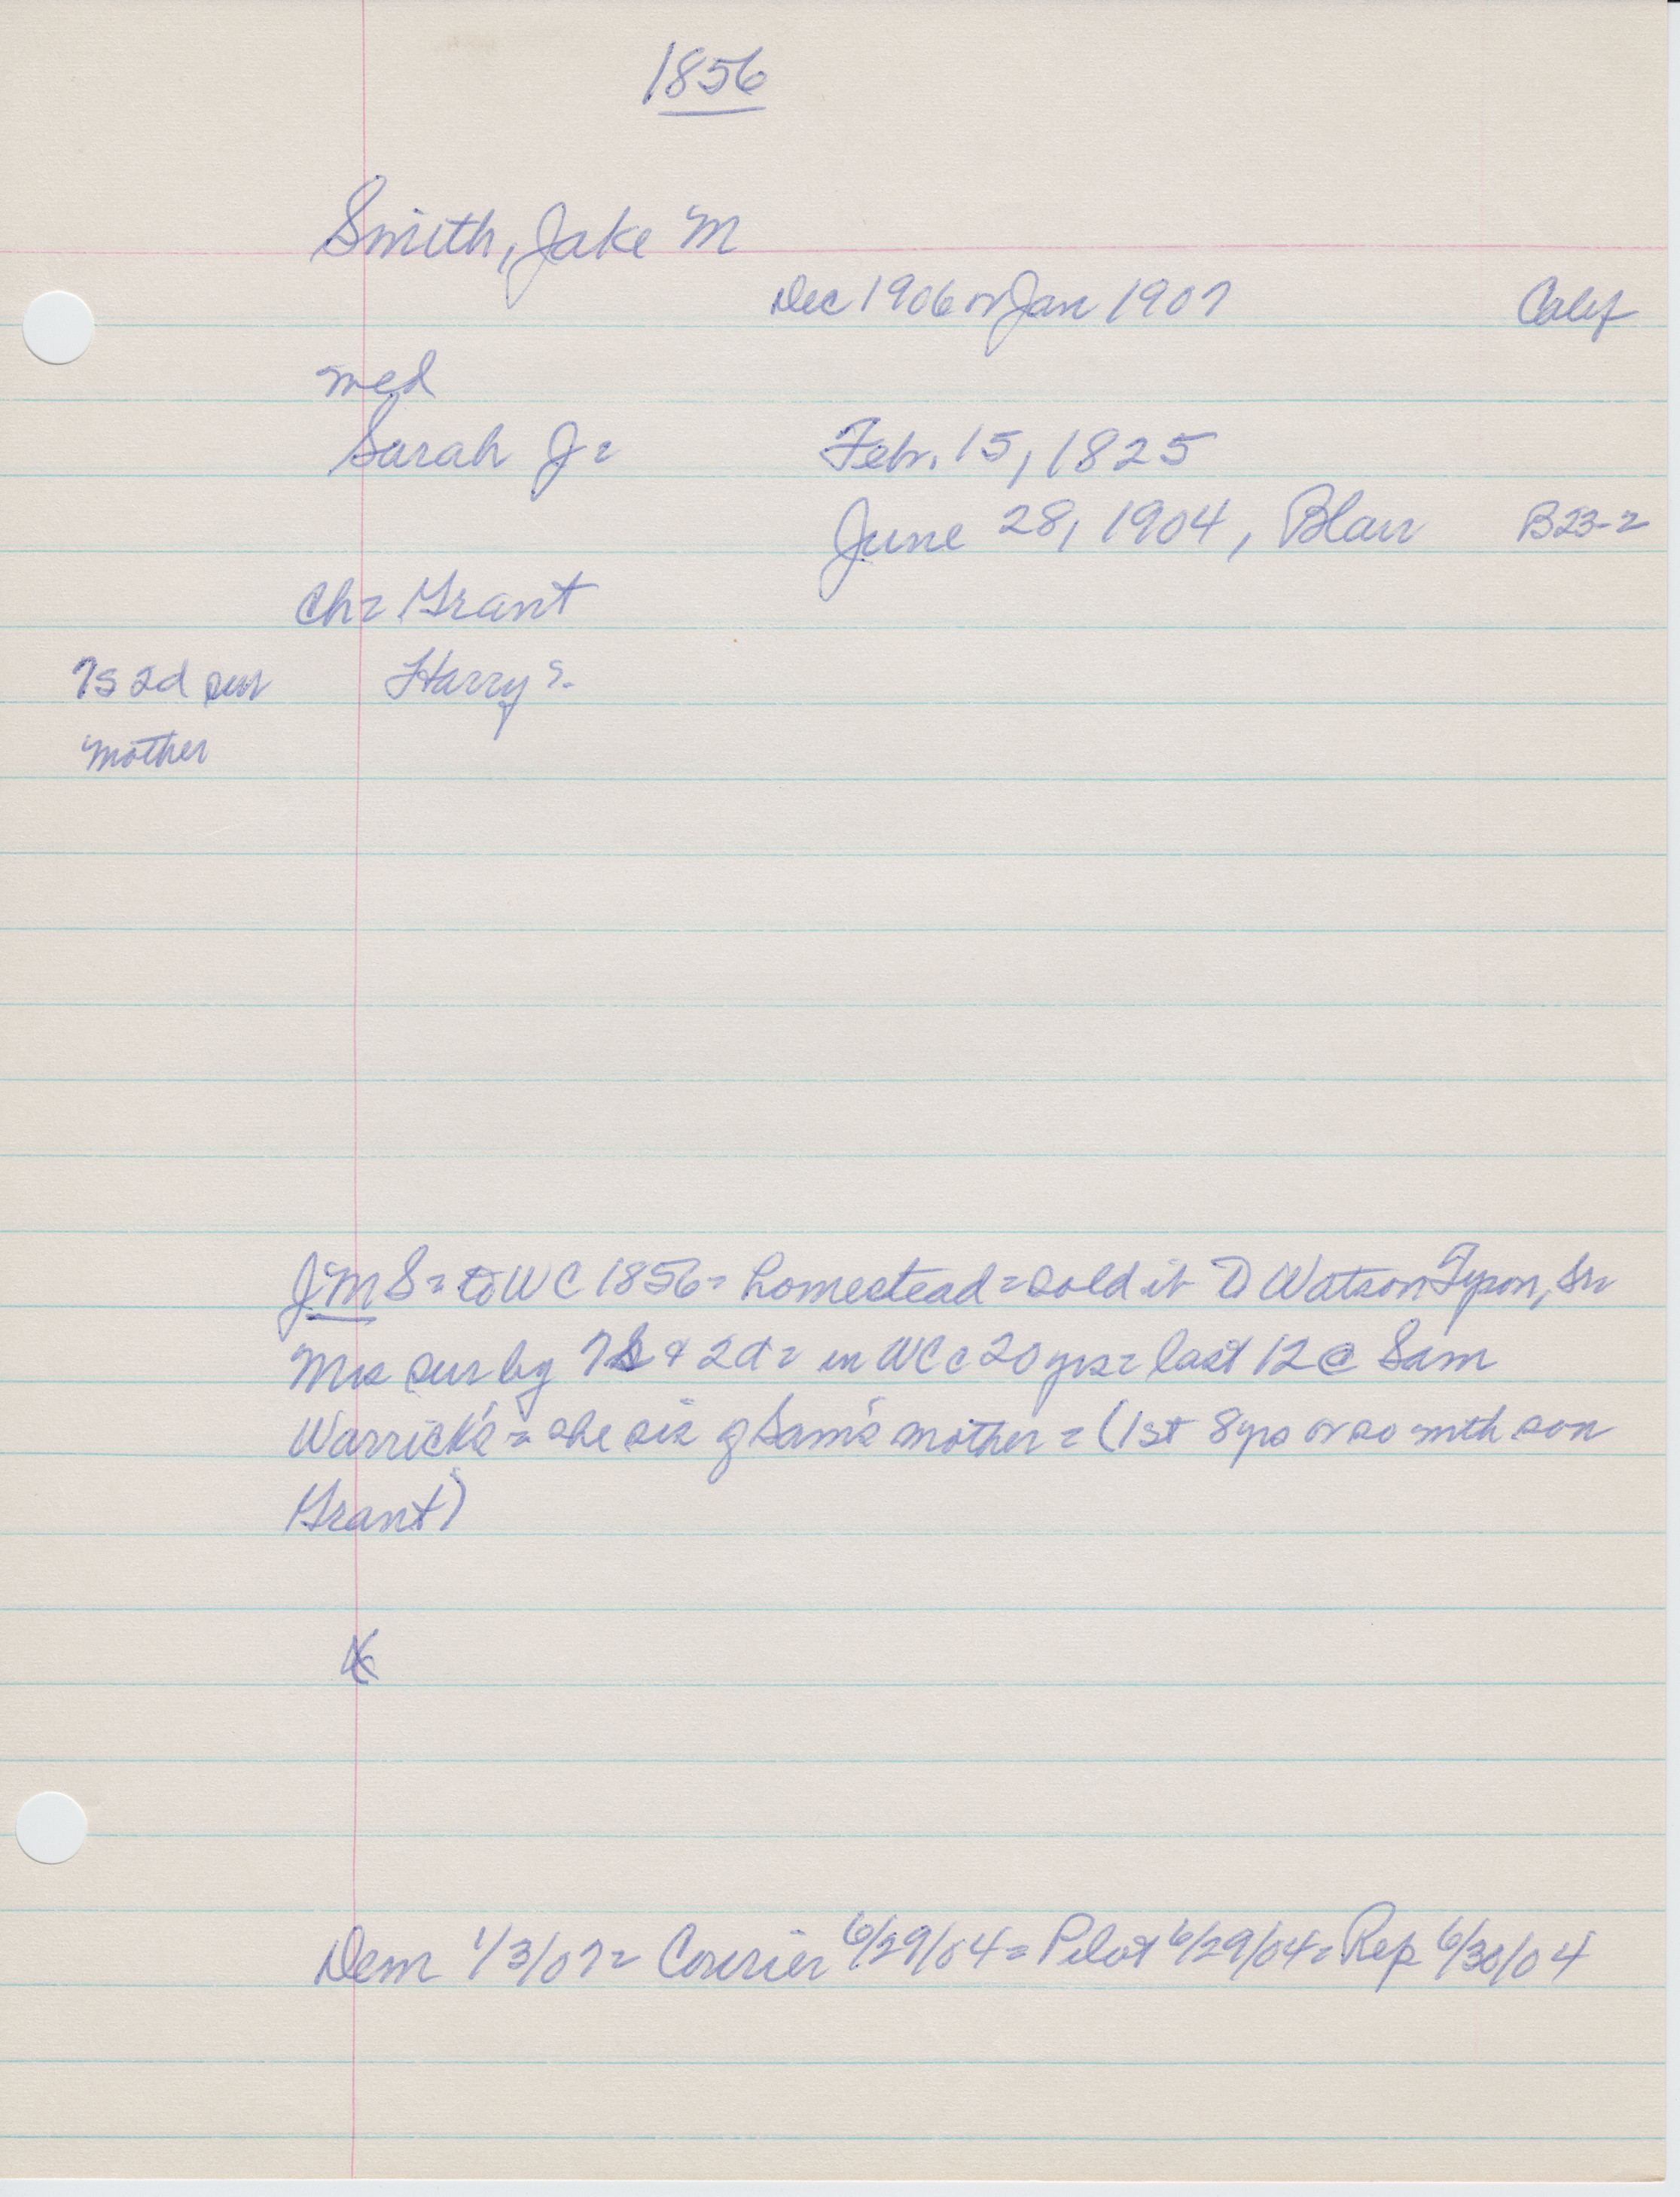 1856
Smith, Jake M
Dec 1906 or Jan 1907 Calif
med
Sarah J =
Feb. 15, 1825
June 28, 1904, Blair B23-2
Ch = Grant
7s 2d sur Harry S.
mother
JMS = to WC 1856 = homestead = sold it to Watson Tyson, Sr
Mrs sur by 7s & 2d = in WC c 20 yrs = last 12 @ Sam
Warrick's = she sis of Sam's mother = (1st 8 yrs or so with son
Grant)
Dem 1/3/07 = Courier 6/29/04 = Pilot 6/29/04 = Rep 6/30/04